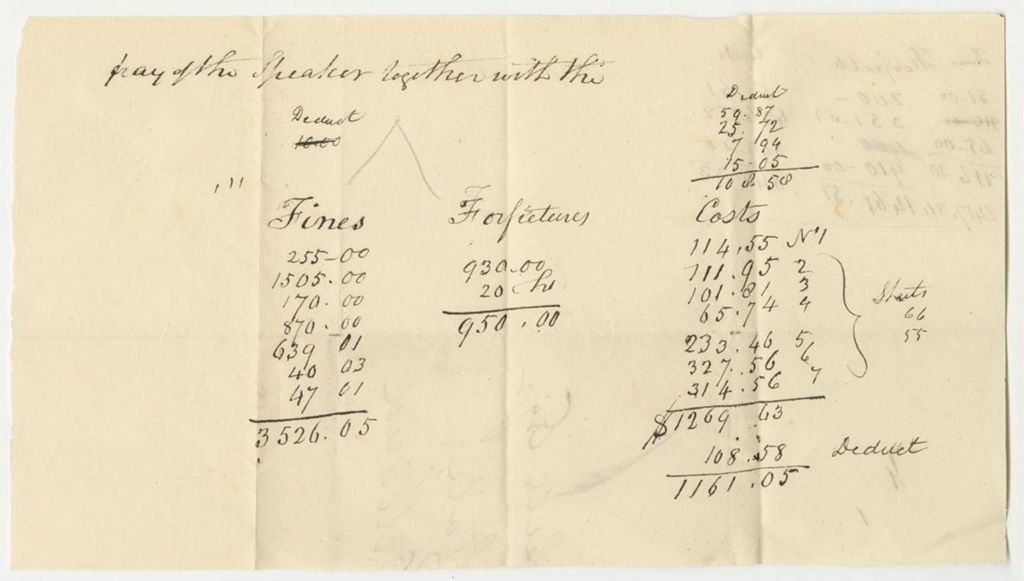 pay of the Speaker together with the
Deduct
10.00
Deduct
59.87
25.72
7.94
15-05
108 58
Fines
255-00
1505.00
170.00
870.00
639 01
40 03
47 01
3526.05
Forfietures
930.00
20
950.00
Costs
114,55 No 1
111.95 2
101.81 3
65.74 4
233.46 5
327.56 6
314.56 7
$1269.63
108.58 Deduct
1161.05
66
55